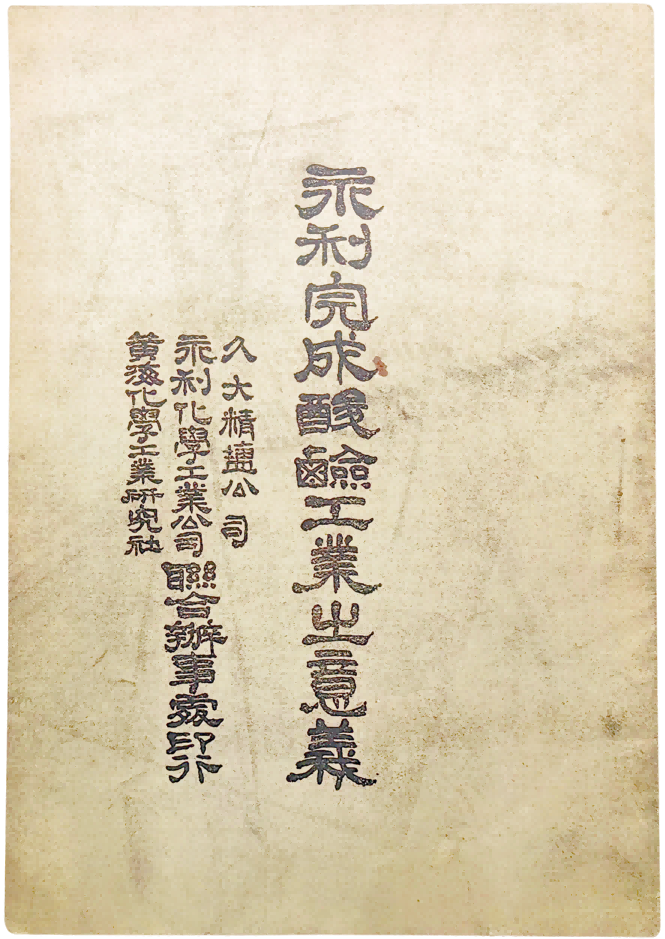 永利完成酸鹼工業之意義
久大精鹽公司
永利化學工業公司
黃海化學工業研究社
聯合辦事處印行